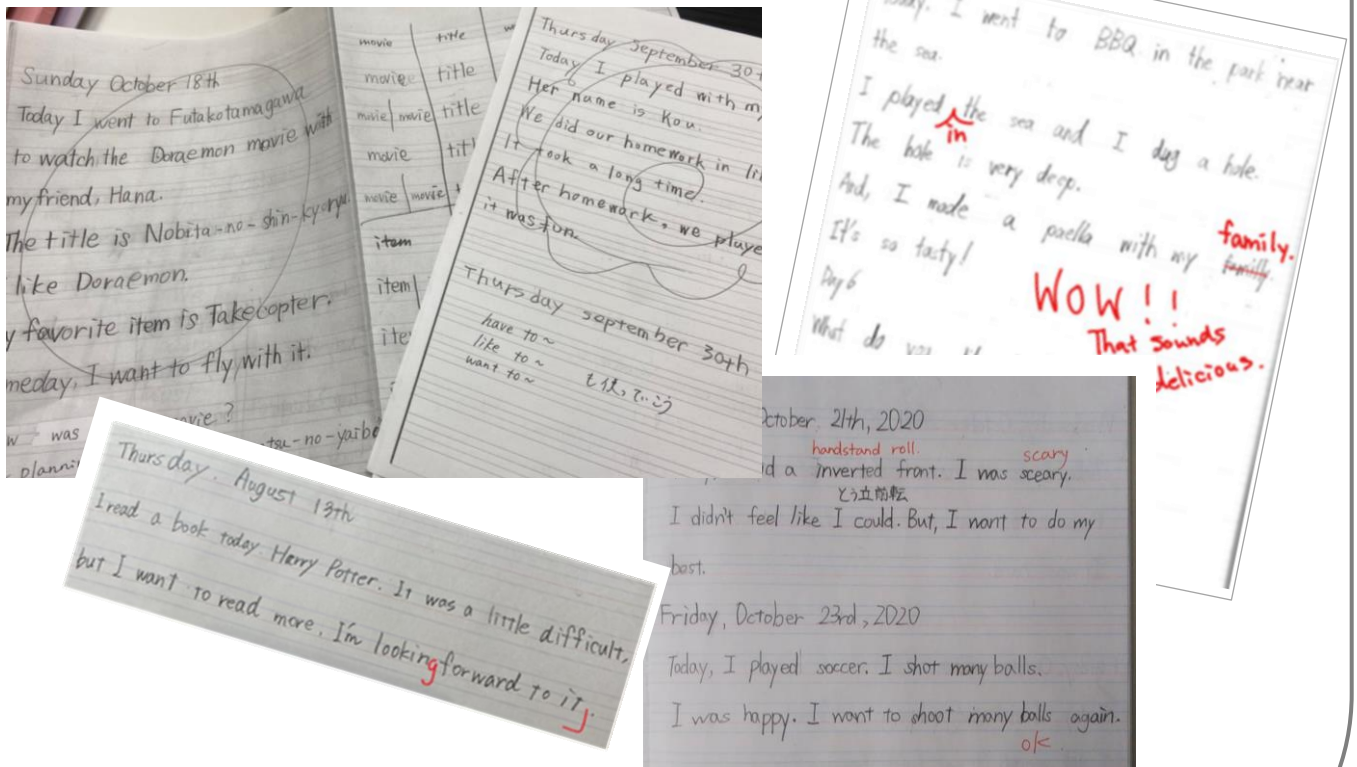 Sunday October 18th
Today I went to Futakotamagawa
to watch the Doraemon movie with
my friend, Hana.
The title is Nobita-no-shin-kyoryu.
like Doraemon.
favorite item is Takecopter.
I want to fly with it.
was
movie title
movie title
movie movie title
movie
movie movie
item
item
Thursday September
Today I played with
Her name is Kou.
We did our homework in
It took a long time.
After homework, we
it was fun.
Thursday september 30th
have to ~
like to ~
want to ~
I went to BBQ in the park near
the sea.
I played the sea and I dug a hole.
in
The hole is very deep.
And, I made a paella with my familly.
family.
It's so tasty!
WOW!!
That sounds
delicious.
Day 6
What do
Thursday. August 13th
I read a book today Harry Potter. It was a little difficult,
but I want to read more. I'm looking forward to it.
October 21th, 2020
handstand roll. scary
a inverted front. I was sceary.
とう立前転
I didn't feel like I could. But, I want to do my
best.
Friday, October 23rd, 2020
Today, I played soccer. I shot many balls.
I was happy. I want to shoot many balls again.
ok